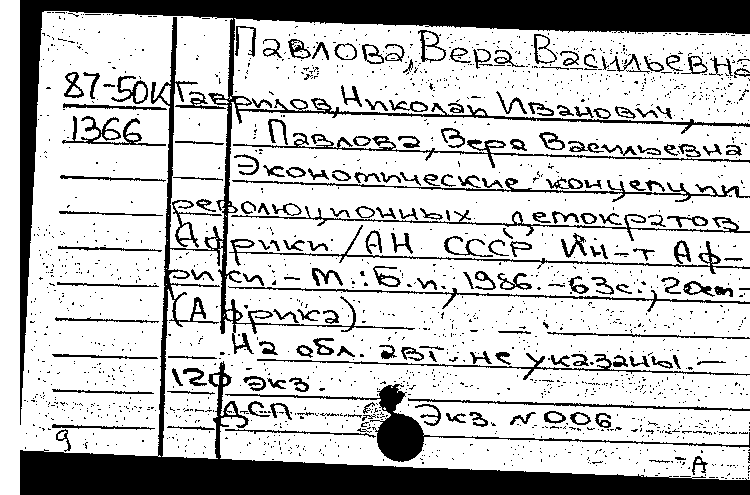 Павлова, Вера Васильевна
87-50к Гаврилов, Николай Иванович,
1366 Павлова, Вера Васильевна
Экономические концепции
революционных демократов
Африки / АН СССР, Ин-т Аф-
рики. - М.: Б.и., 1986. - 63с.; 20см. -
(Африка).
На обл. авт. не указаны. -
120 экз.
ДСП. Экз. N 006.
9
А